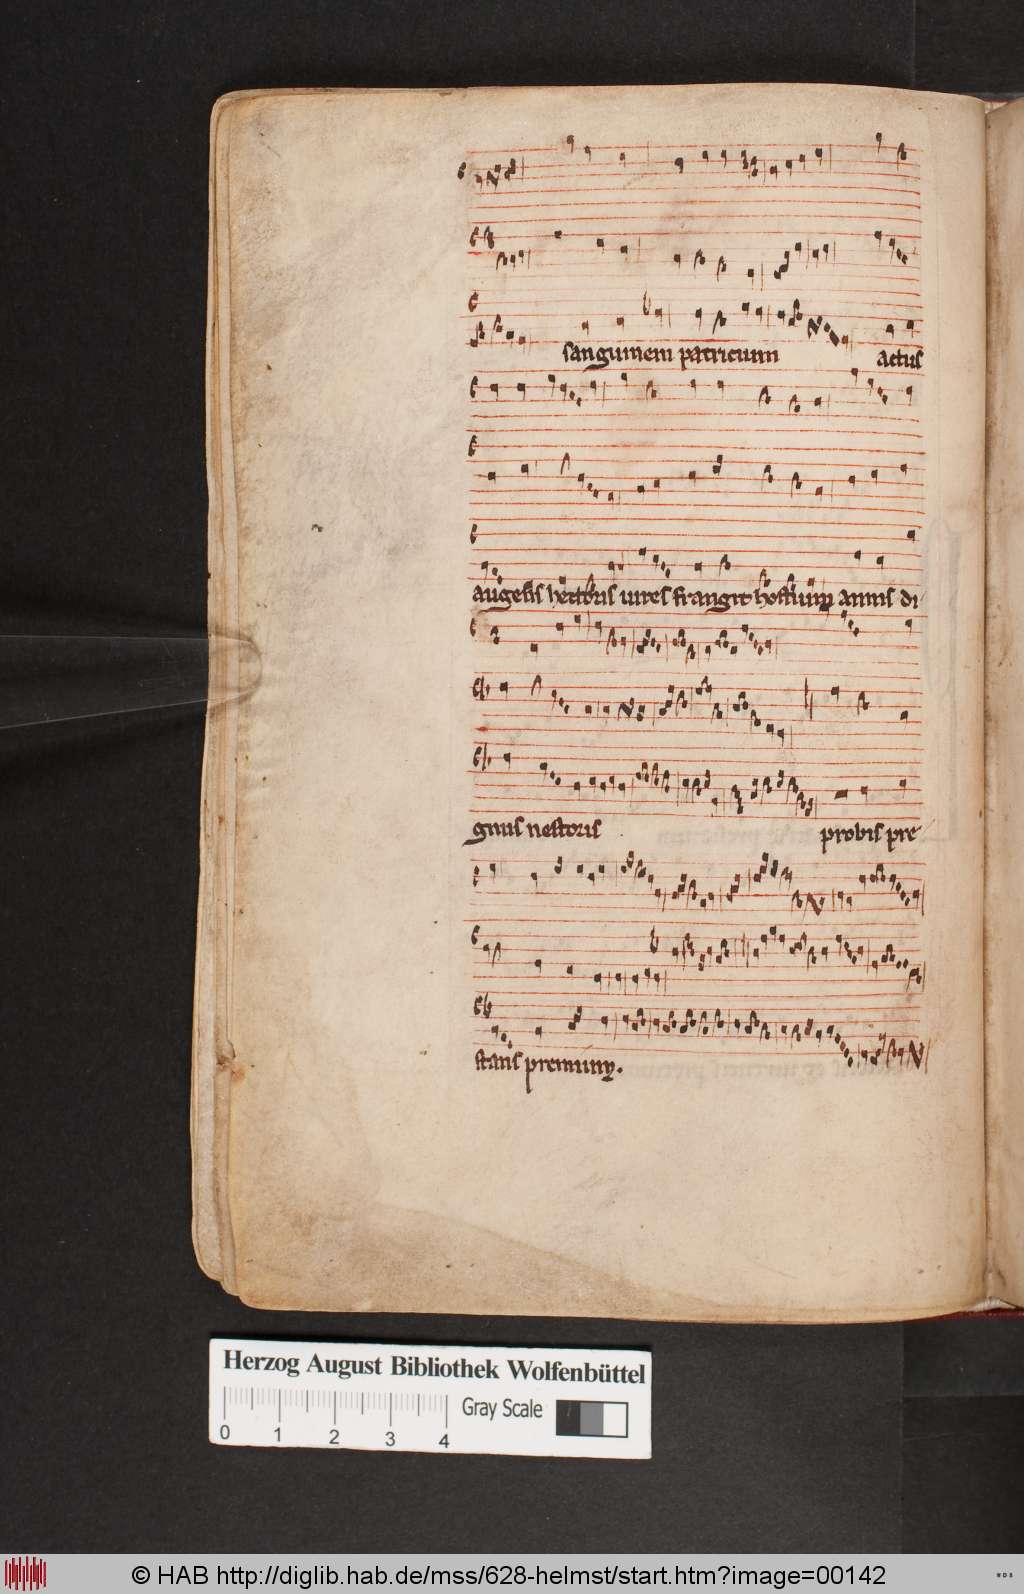 sanguinem patricium actus
augens hectoris vires frangit hostium annis di
gnus nestoris probis pre
stans
Herzog August Bibliothek Wolfenbüttel
Gray Scale
0 1 2 3 4
© HAB http://diglib.hab.de/mss/628-helmst/start.htm?image=00142